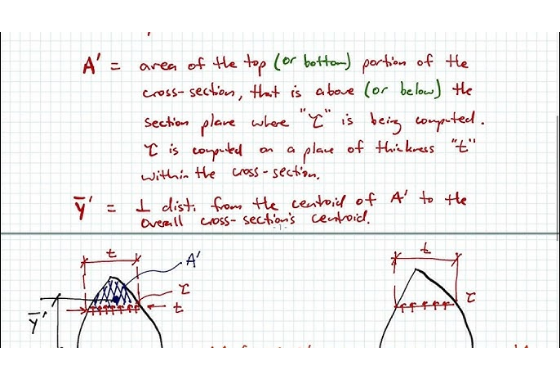 A' = area of the top (or bottom) portion of the
cross-section, that is above (or below) the
section plane where "τ" is being computed.
τ is computed on a plane of thickness "t"
within the cross-section.
ȳ' = ⊥ dist. from the centroid of A' to the
overall cross-section's centroid.
t
A'
τ
t
ȳ'
t
τ